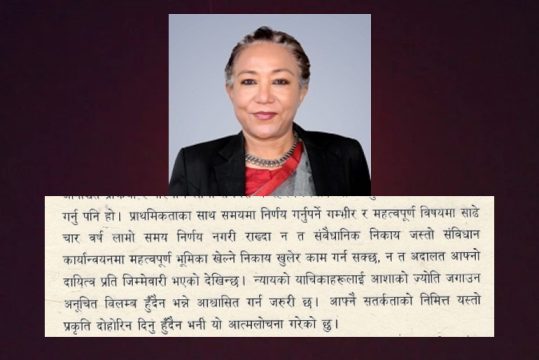 गर्नु पनि हो। प्राथमिकताका साथ समयमा निर्णय गर्नुपर्ने गम्भीर र महत्वपूर्ण विषयमा साढे
चार वर्ष लामो समय निर्णय नगरी राख्दा न त संवैधानिक निकाय जस्तो संविधान
कार्यान्वयनमा महत्वपूर्ण भूमिका खेल्ने निकाय खुलेर काम गर्न सक्छ, न त अदालत आफ्नो
दायित्व प्रति जिम्मेवारी भएको देखिन्छ। न्यायको याचिकाहरूलाई आशाको ज्योति जगाउन
अनूचित विलम्ब हुँदैन भन्ने आश्वासित गर्न जरुरी छ। आफ्नै सतर्कताको निमित्त यस्तो
प्रकृति दोहोरिन दिनु हुँदैन भनी यो आत्मलोचना गरेको छु।